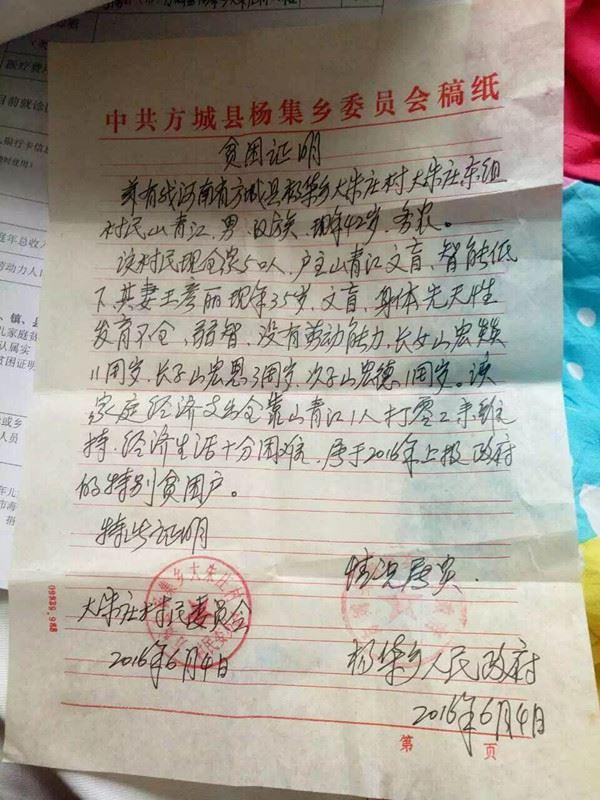 医疗费用
目前就诊
银行卡信息
庭年总收入
劳动力人口
中共方城县杨集乡委员会稿纸
贫困证明
兹有我河南省方城县杨集乡大朱庄村大朱庄东组
村民山青江、男、汉族、现年42岁、务农。
该村民现全家5口人,户主山青江文盲、智能低
下,其妻王秀丽现年35岁、文盲、身体先天性
发育不全、弱智、没有劳动能力,长女山宏
11周岁、长子山宏恩3周岁、次子山宏德1周岁。该
家庭经济支出全靠山青江1人打零工来维
持、经济生活十分困难、序于2016年上报政府
的特别贫困户。
特此证明
情况属实.
大朱庄村村民委员会
2016年6月4日
杨集乡人民政府
2016年6月4日
第 页